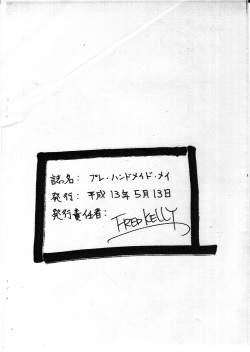 誌名： プレ・ハンドメイド・メイ
発行： 平成 13年 5月 13日
発行責任者： FRED KELLY